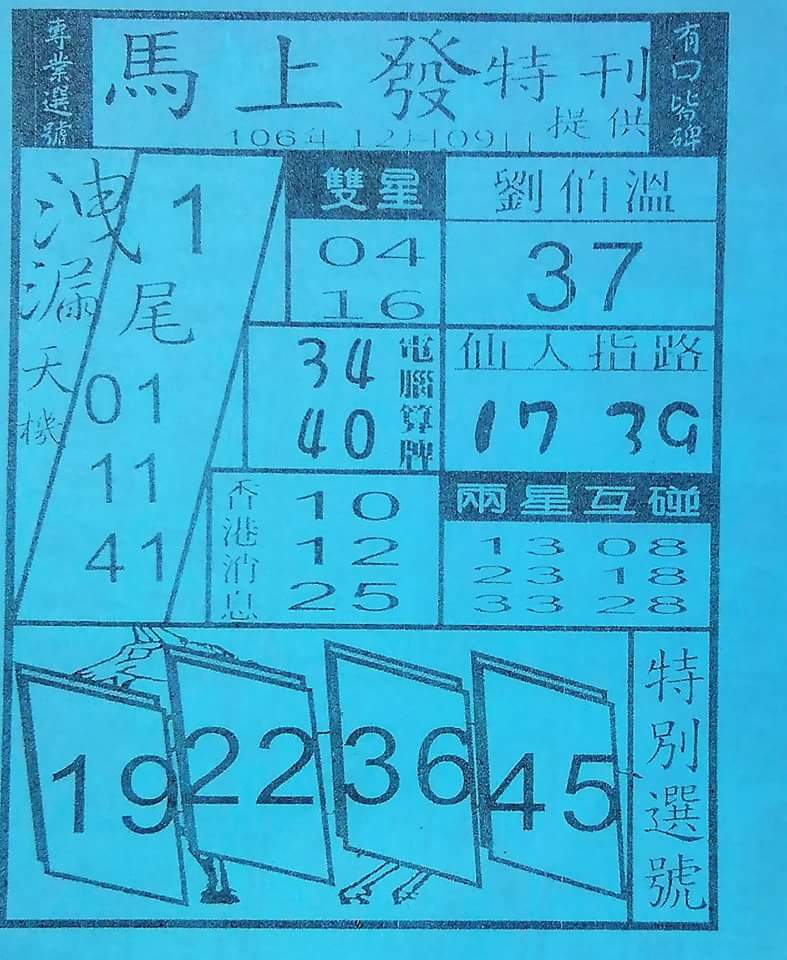 專業選號
馬上發特刊
106年12月09日 提供
有口皆碑
洩漏天機
1
尾
01
11
41
雙星
04
16
劉伯溫
37
34
40
電腦算牌
仙人指路
17 39
香港消息
10
12
25
兩星互碰
13 08
23 18
33 28
19 22 36 45
特別選號